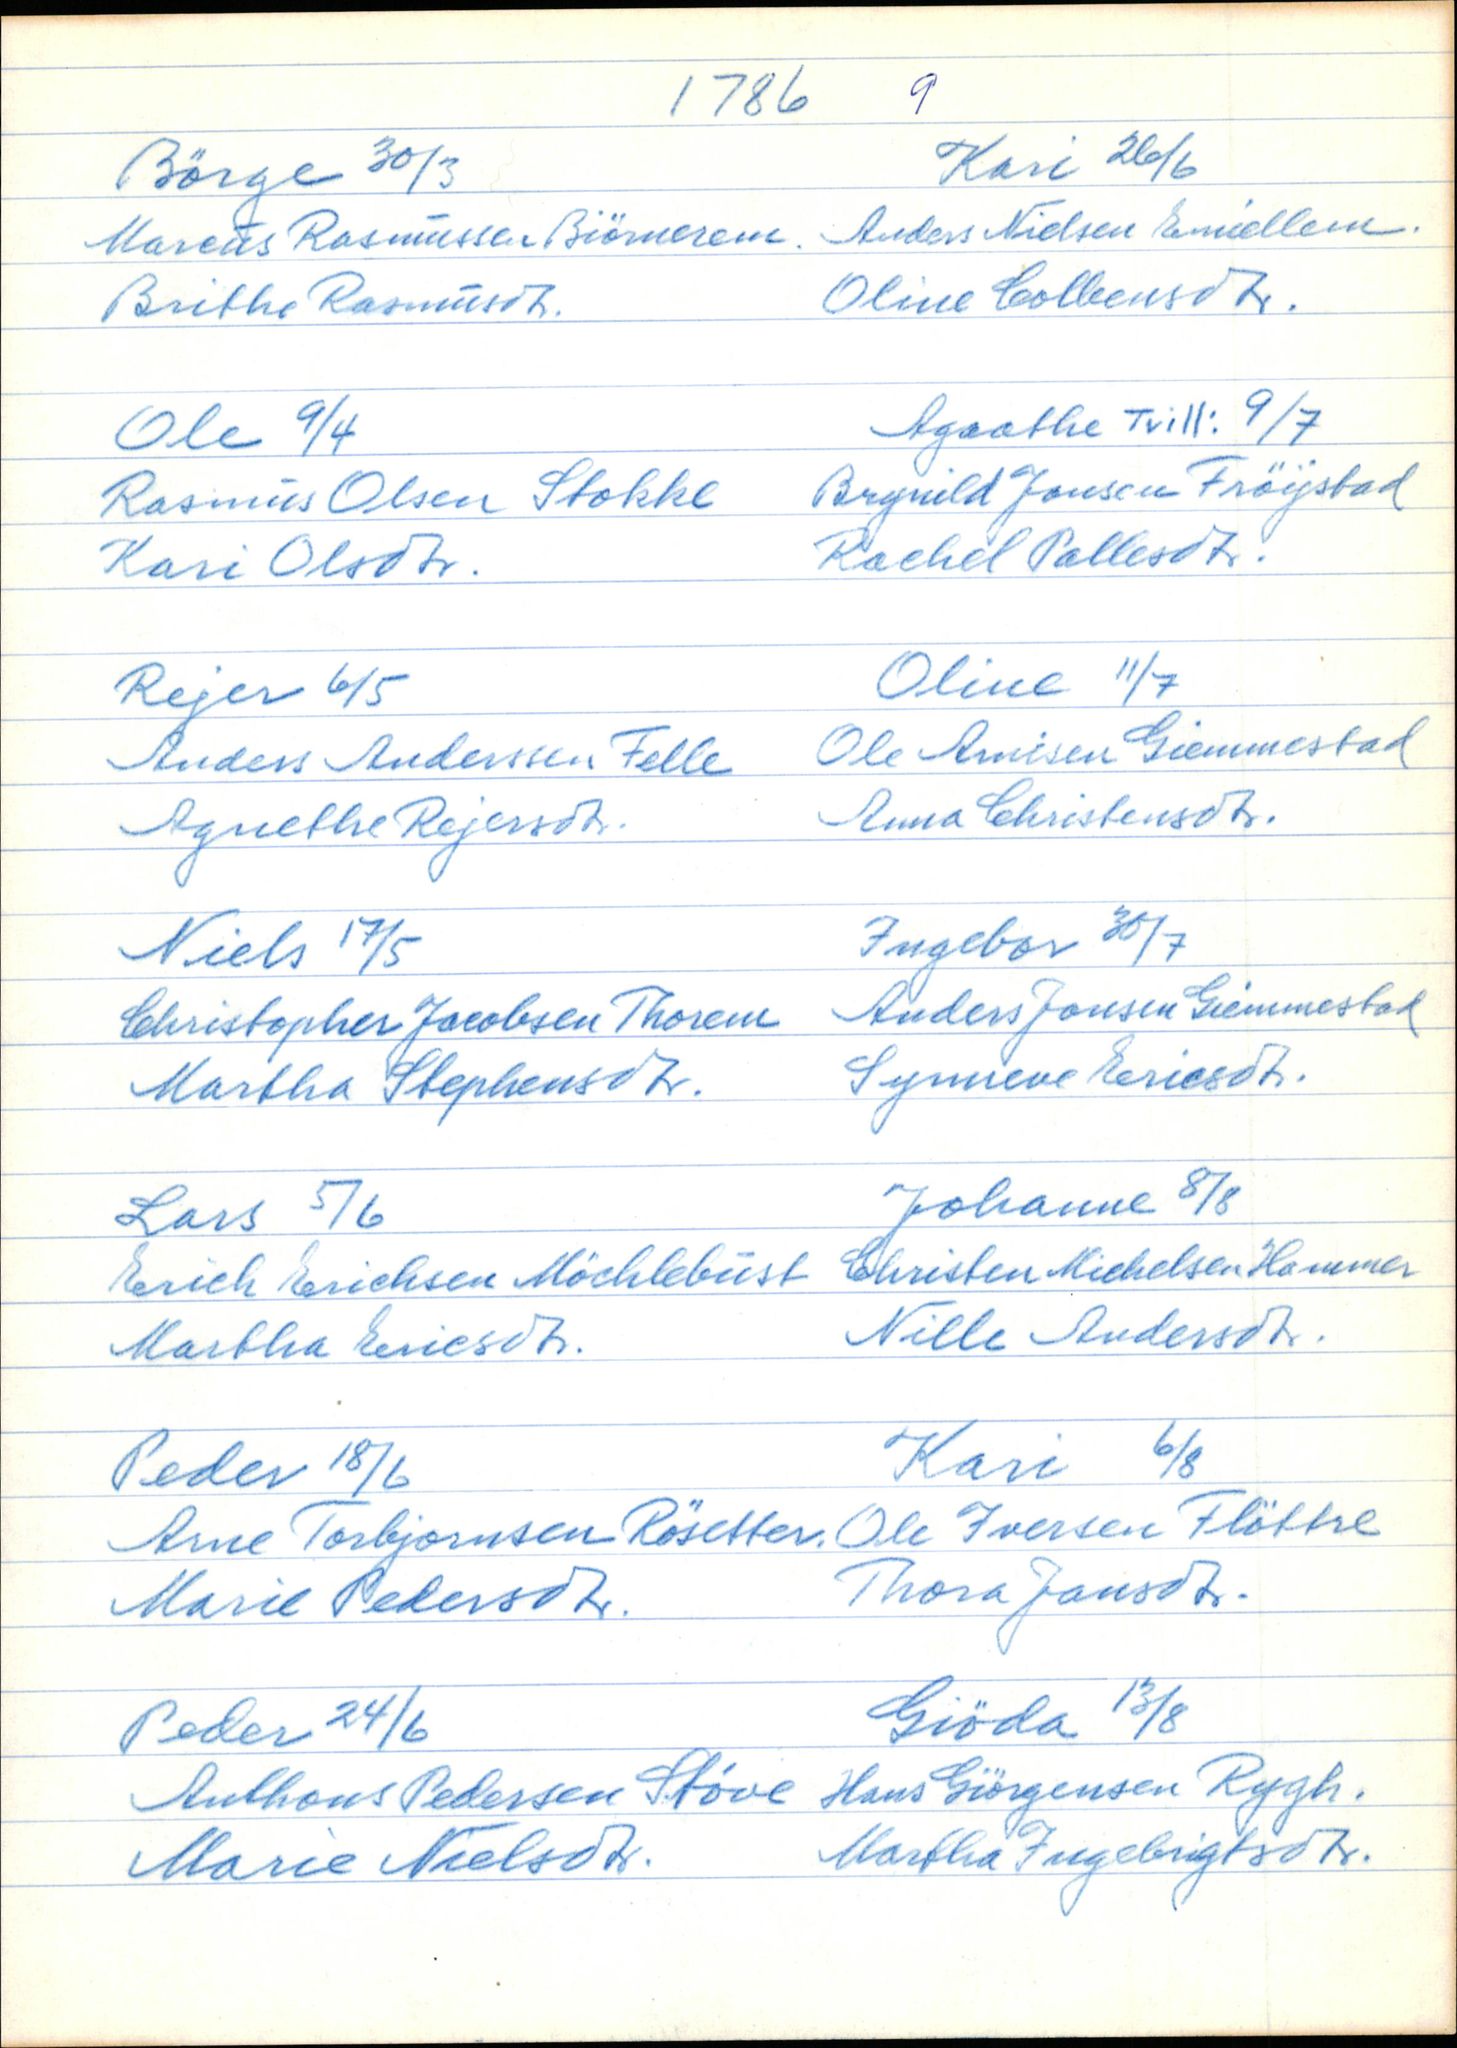 1786 9
Börge 30/3
Marcus Rasmussen Biörnerem.
Brithe Rasmusdtr.
Ole 9/4
Rasmus Olsen Stokke
Kari Olsdtr.
Rejer 6/5
Anders Anderssen Felle
Agnethe Rejersdtr.
Niels 17/5
Christopher Jacobsen Thorem
Martha Stephensdtr.
Lars 5/6
Erich Erichsen Möchlebust
Martha Ericsdtr.
Peder 18/6
Arne Torbjornsen Rösetter.
Marie Pedersdtr.
Peder 24/6
Anthons Pedersen Stöve
Marie Nielsdtr.
Kari 26/6
Anders Nielsen
Oline Colbensdtr.
Agaathe Tvill: 9/7
Brynild Jonsen Fröystad
Rachel Pallesdtr.
Oline 11/7
Ole Arnisen Giemmestad
Anna Christensdtr.
Ingebor 30/7
Anders Jonsen Giemmestad
Synneve Ericsdtr.
Johanne 8/8
Christen Michelsen Hammer
Nille Andersdtr.
Kari 6/8
Ole Iversen Flöttre
Thora Jansdtr.
Giöda 13/8
Hans Giörgensen Rygh.
Martha Ingebrigtsdtr.